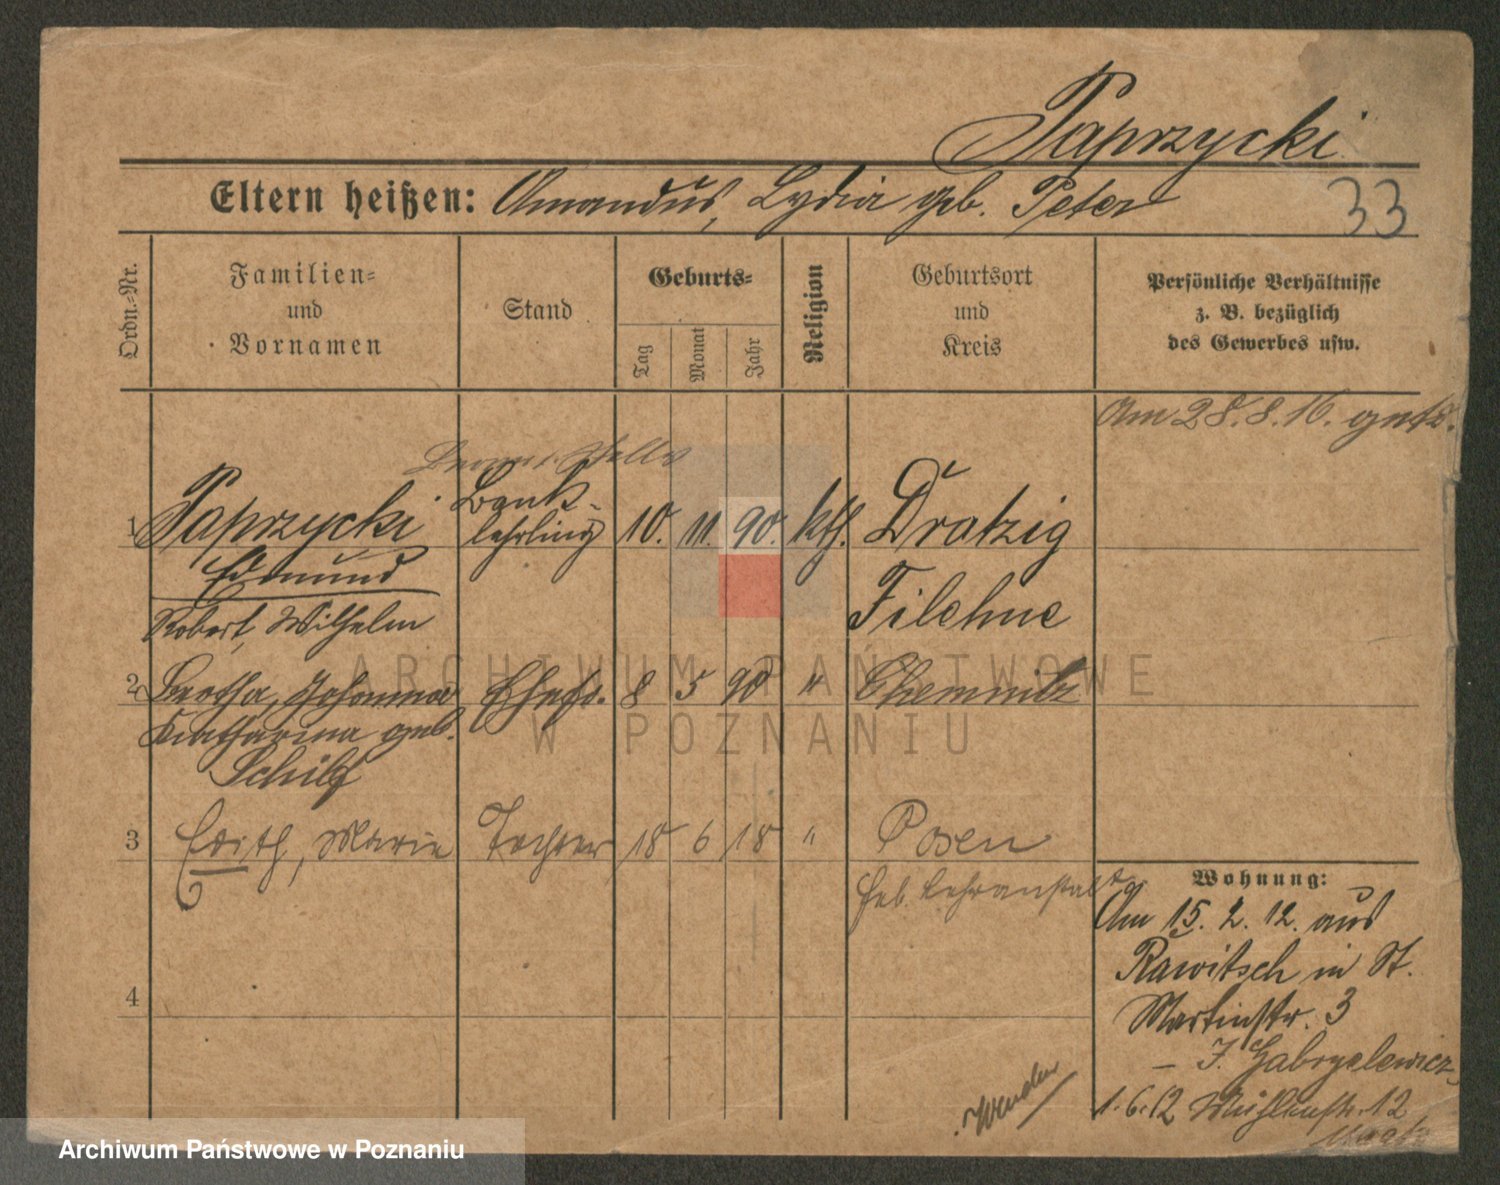 Paprzycki
Eltern heißen: Amandus, Lydia geb. Peter
33
Ordn.-Nr.
Familien-
und
Vornamen
Stand
Geburts-
Tag
Monat
Jahr
Religion
Geburtsort
und
Kreis
Persönliche Verhältnisse
z. B. bezüglich
des Gewerbes usw.
Am 28.8.16.
1 Paprzycki Bank- 10. 11. 90. kth. Dratzig
lehrling
Edmund Filehne
Robert, Wilhelm
2 Bertha, Johanna Ehefr. 8 5 90 " Chemnitz
Katharina geb.
Schilf
3 Edith, Marie Tochter 18 6 18 " Posen
Heb. Lehranstalt
4
Wohnung:
Am 15. 2. 12. aus
Rawitsch in St.
Martinstr. 3
– J. Gabryelewicz
1.6.12 Mühlenstr. 12
Wenden
ARCHIWUM PAŃSTWOWE
W POZNANIU
Archiwum Państwowe w Poznaniu